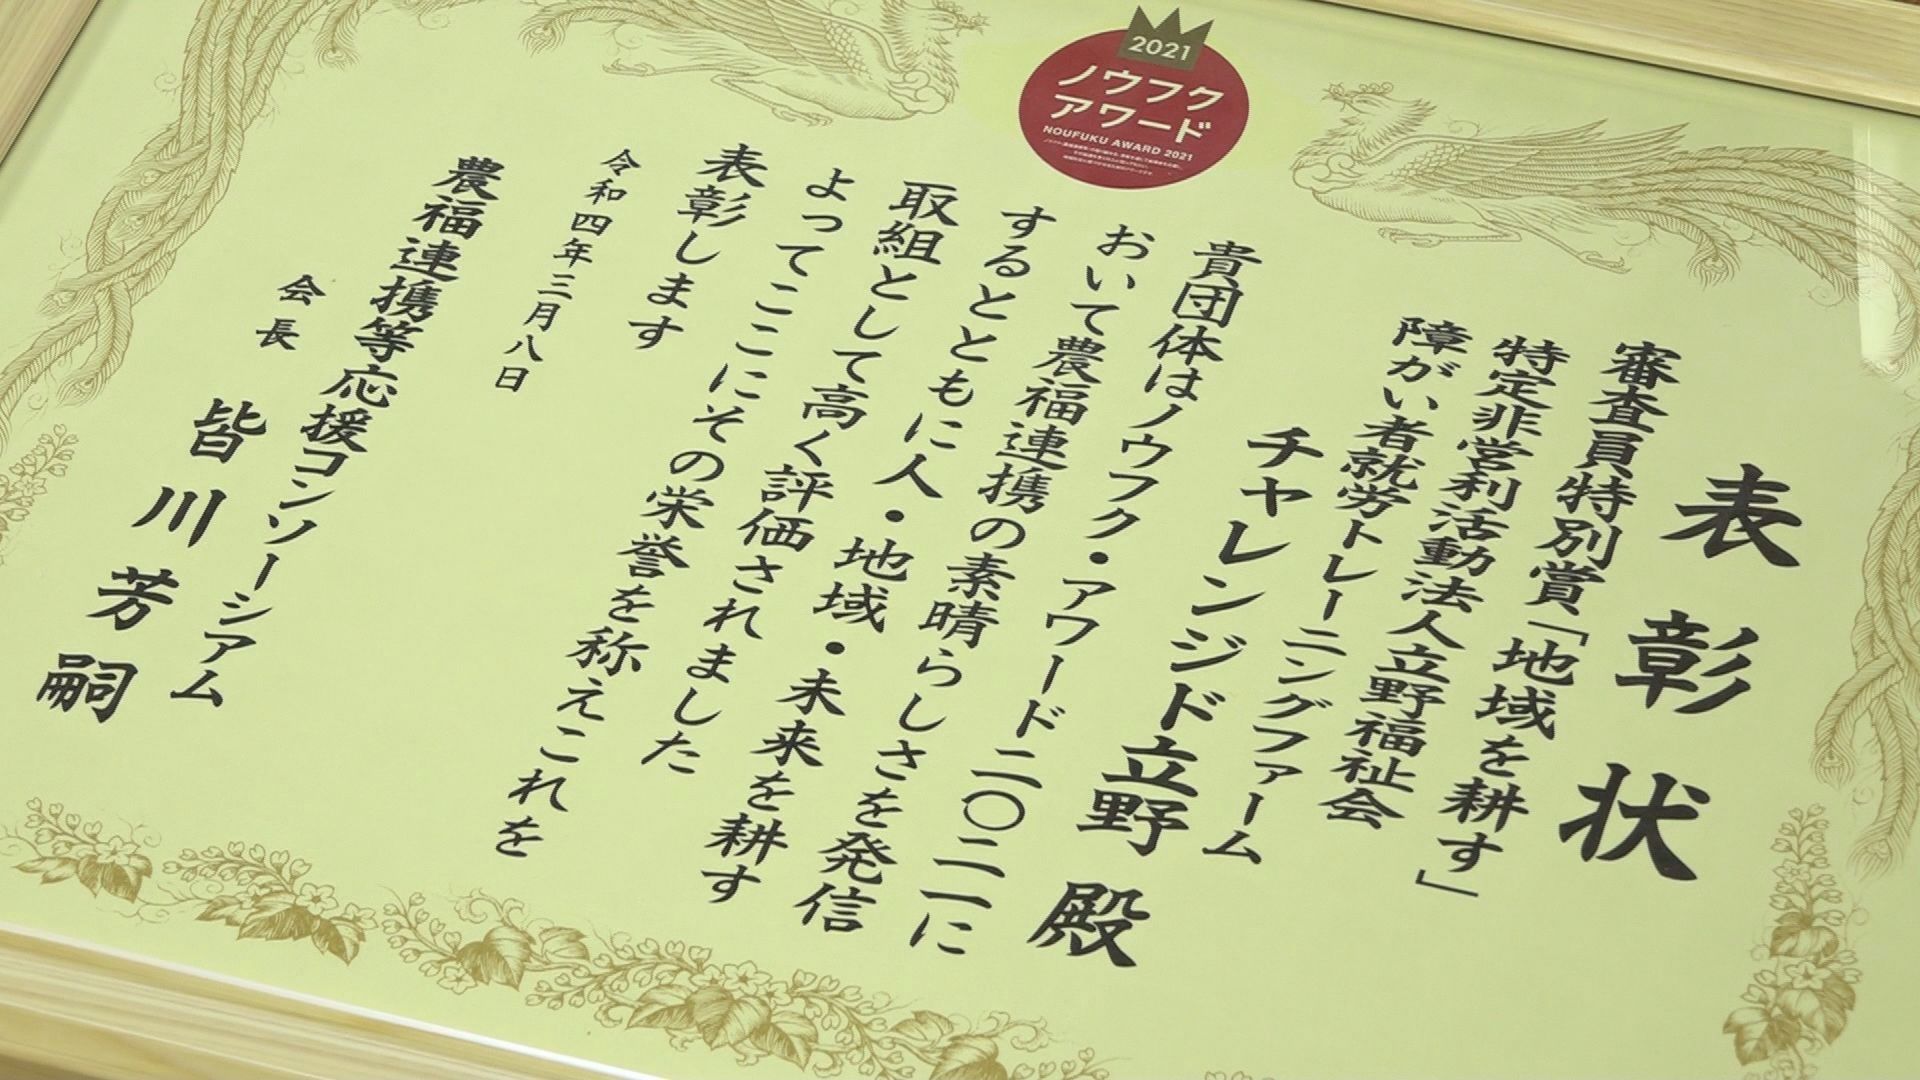 2021
ノウフク
アワード
NOUFUKU AWARD 2021
表彰状
審査員特別賞「地域を耕す」
特定非営利活動法人立野福祉会
障がい者就労トレーニングファーム
チャレンジド立野 殿
貴団体はノウフク・アワード二〇二一に
おいて農福連携の素晴らしさを発信
するとともに人・地域・未来を耕す
取組として高く評価されました
よってここにその栄誉を称えこれを
表彰します
令和四年三月八日
農福連携等応援コンソーシアム
会長 皆川芳嗣